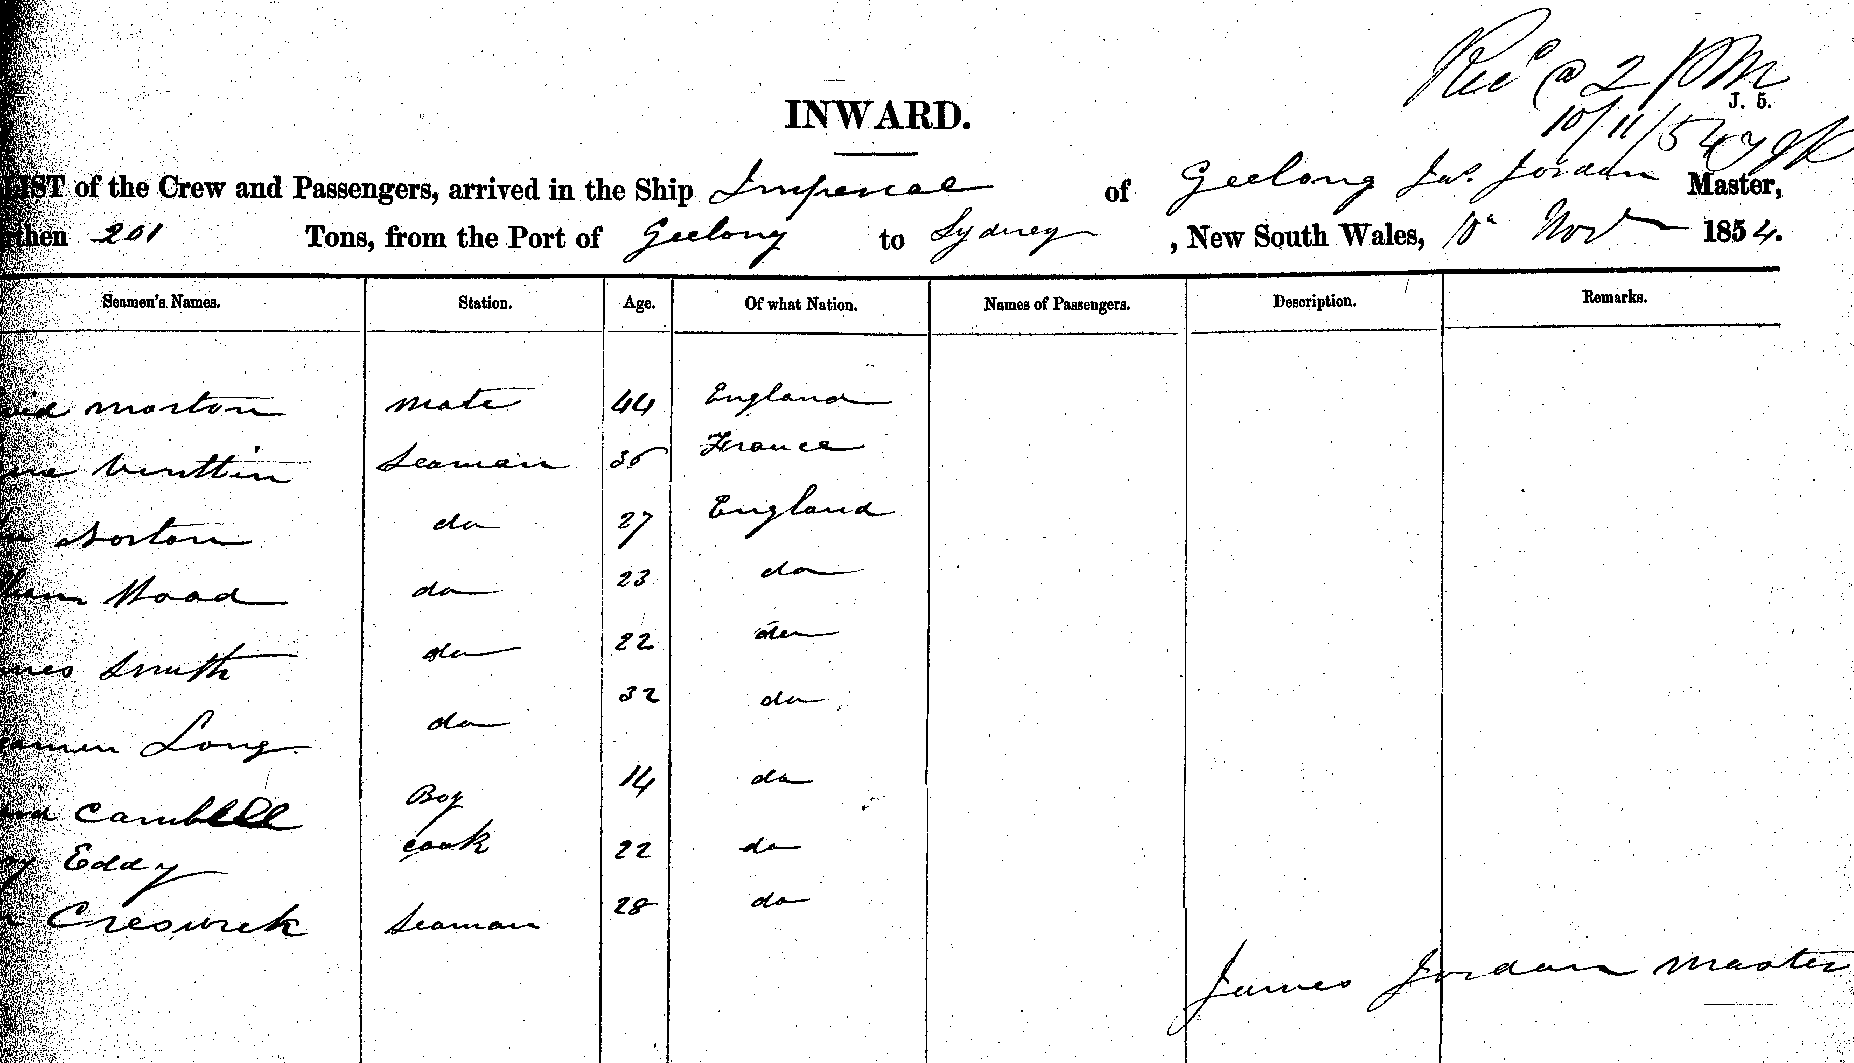 Recd @ 2 PM
J. 5.
10/11/54
INWARD.
LIST of the Crew and Passengers, arrived in the Ship Imperial of Geelong Jas. Jordan Master,
then 201 Tons, from the Port of Geelong to Sydney, New South Wales, 10th Novr 1854.
Seamen's Names. Station. Age. Of what Nation. Names of Passengers. Description. Remarks.
Morton Mate 44 England
Seaman 35 France
Norton do 27 England
Hoad do 23 do
Smith do 22 do
Long do 32 do
Cambell Boy 14 do
Eddy Cook 22 do
Creswick Seaman 28 do
James Jordan Master